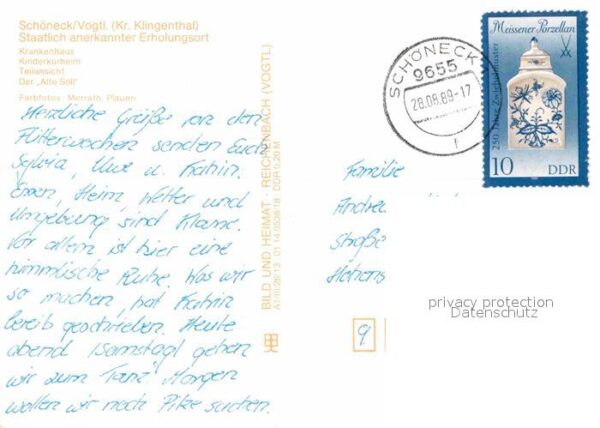 Schöneck/Vogtl. (Kr. Klingenthal)
Staatlich anerkannter Erholungsort
Krankenhaus
Kinderkurheim
Teilansicht
Der „Alte Söll“
Farbfotos: Merrath, Plauen
Herzliche Grüße von den
Flitterwochen senden Euch
Sylvia, Uwe u. Katrin.
Essen, Heim, Wetter und
Umgebung sind Klasse.
Vor allem ist hier eine
himmlische Ruhe. Was wir
so machen, hat Katrin
bereits geschrieben. Heute
abend (Samstag) gehen
wir zum Tanz. Morgen
wollen wir noch Pilze suchen.
BILD UND HEIMAT · REICHENBACH (VOGTL)
01 14 0528/18 DDR 0,20 M
SCHÖNECK
9655
26.08.89-17
f
Meissener Porzellan
250 Jahre Zwiebelmuster
10 DDR
Familie
Andrea
Straße
Hohens
privacy protection
Datenschutz
9